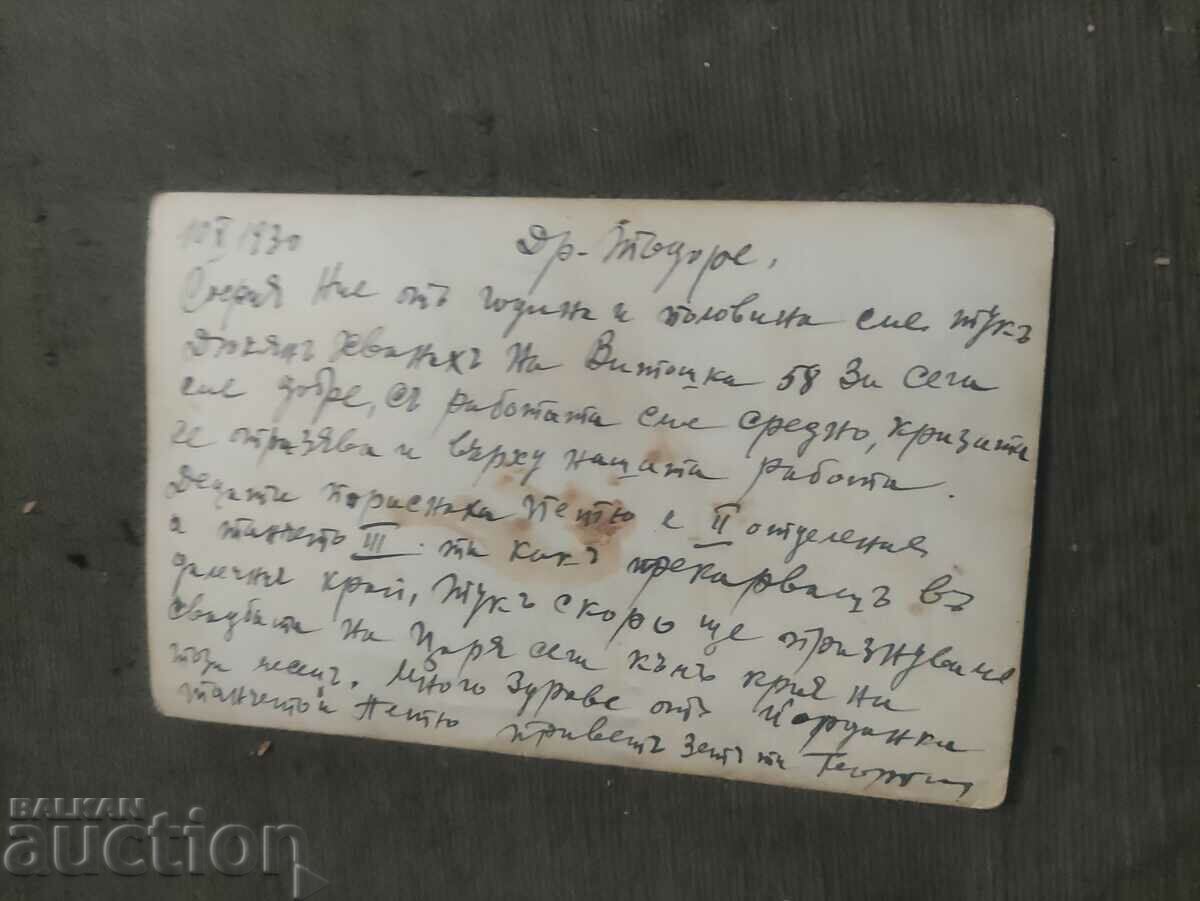 10 X 1930 Др. Тодоре,
София Ние отъ година и половина сме тукъ
Дюкянъ на Витошка 58 За сега
сме добре, съ работата сме средно, кризата
се отразява и върху нашата работа.
Децата пораснаха Петю е II отделение
а Танчето III. ти какъ прекарвашъ въ
далечния край, Тукъ скоро ще празнуваме
свадбата на Царя сега къмъ края на
този месецъ. Много здраве отъ Йорданка
Танчето и Петю приветъ Зетъ ти Георги
BALKAN
auction